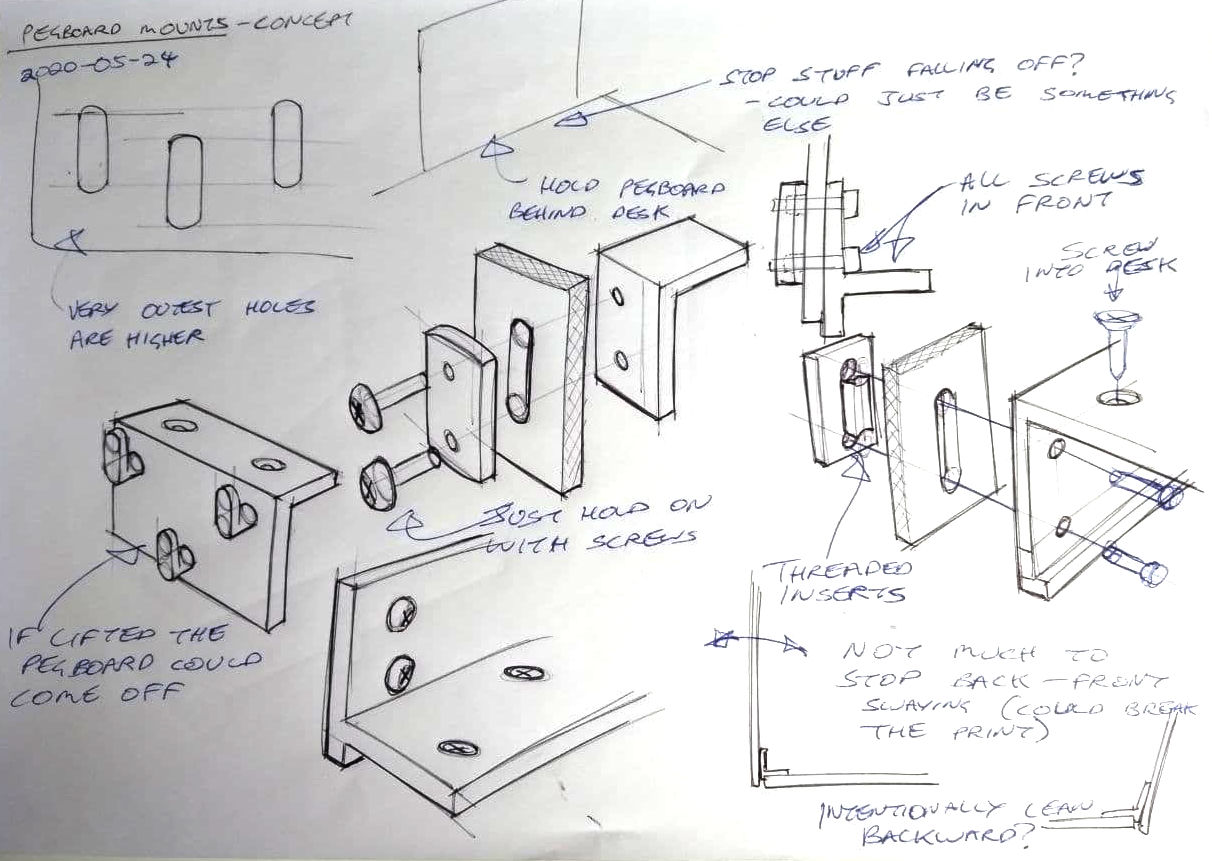 PEGBOARD MOUNTS - CONCEPT
2020-05-24
STOP STUFF FALLING OFF?
- COULD JUST BE SOMETHING
ELSE
HOLD PEGBOARD
BEHIND DESK
ALL SCREWS
IN FRONT
SCREW
INTO DESK
VERY OUTEST HOLES
ARE HIGHER
JUST HOLD ON
WITH SCREWS
THREADED
INSERTS
IF LIFTED THE
PEGBOARD COULD
COME OFF
NOT MUCH TO
STOP BACK-FRONT
SWAYING (COULD BREAK
THE PRINT)
INTENTIONALLY LEAN
BACKWARD?